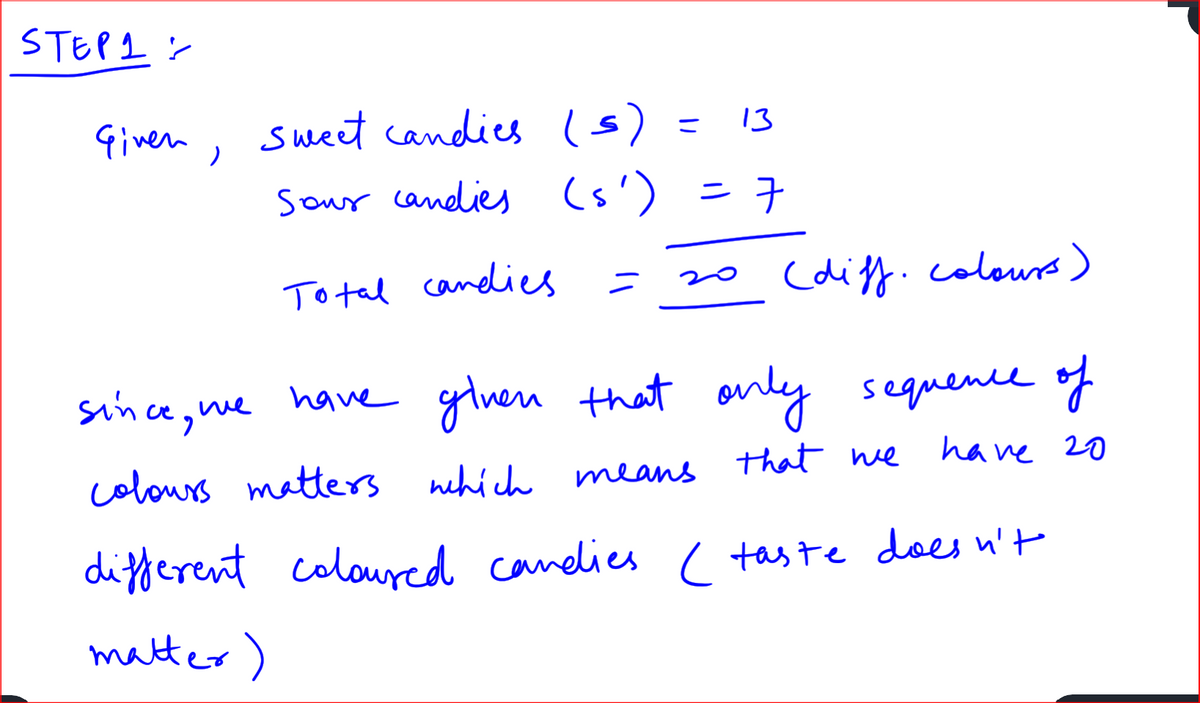 STEP 1 :-
Given, sweet candies (s) = 13
Sour candies (s') = 7
Total candies = 20 (diff. colours)
since, we have given that only sequence of
colours matters which means that we have 20
different coloured candies ( taste doesn't
matter)